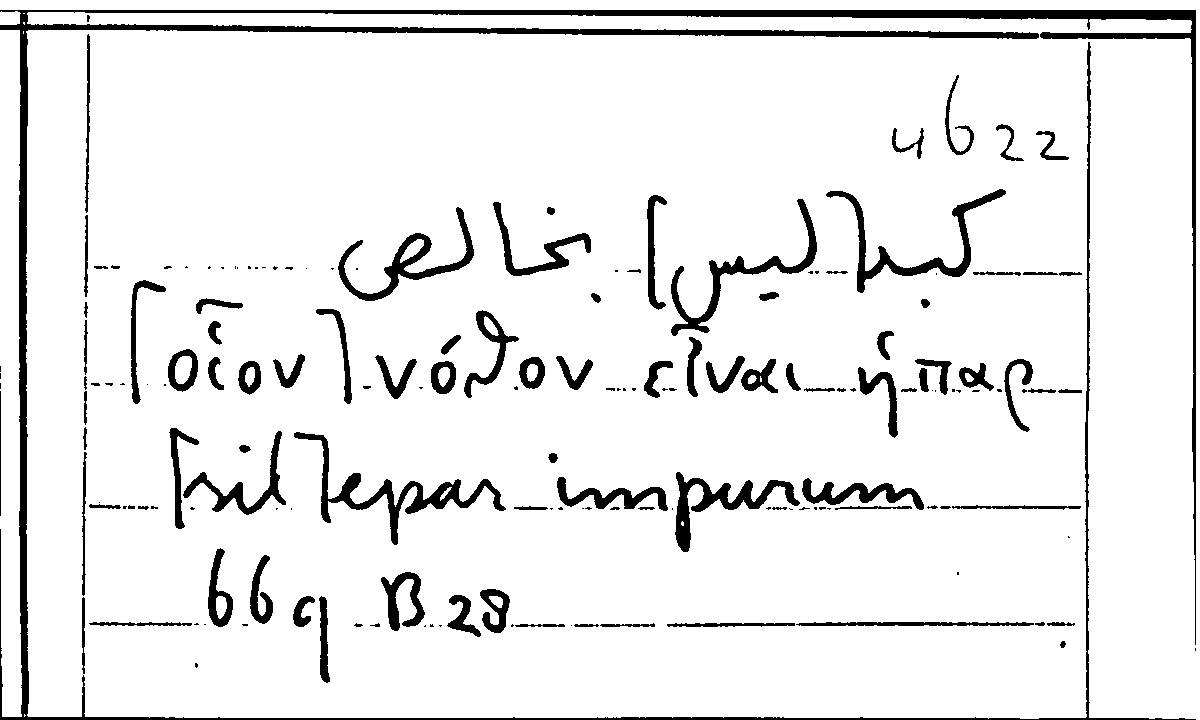 4b22
كبد [ليس] بخالص
[οἷον] νόθον εἶναι ἡπαρ
[sit] epar impurum
669 B 28